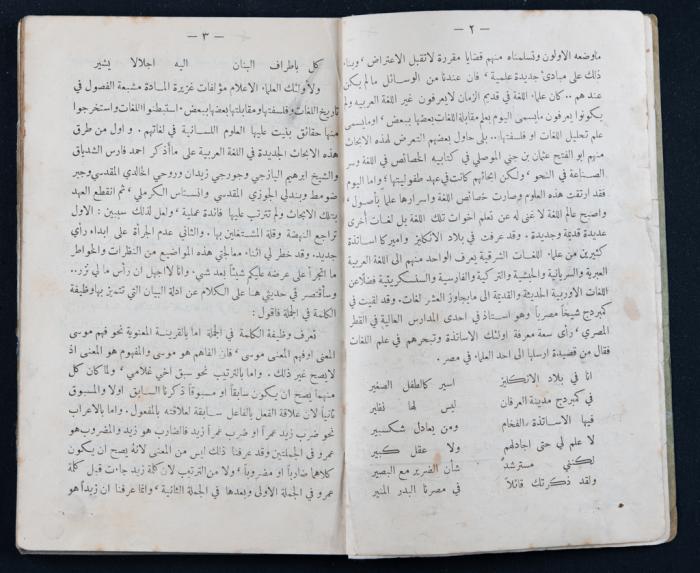 — ٢ —
ما وضعه الاولون وتسلمناه منهم قضايا مقررة لا تقبل الاعتراض ، وبناء
ذلك على مبادئ جديدة علمية ، فان عندنا من الوسائل ما لم يكن
عندهم .. كان علماء اللغة في قديم الزمان لا يعرفون غير اللغة العربية ولم
يكونوا يعرفون ما يسمى اليوم بعلم مقابلة اللغات بعضها ببعض ، او ما يسمى
علم تحليل اللغات او فلسفتها .. بلى حاول بعضهم التعرض لهذه الابحاث
منهم ابو الفتح عثمان بن جني الموصلي في كتابيه الخصائص في اللغة وسر
الصناعة في النحو ، ولكن ابحاثهم كانت في عهد طفوليتها ، واما اليوم
فقد ارتقت هذه العلوم وصارت خصائص اللغة واسرارها علماً بأصول ،
واصبح عالم اللغة لا غنى له عن تعلم اخوات تلك اللغة بل لغات أخرى
عديدة قديمة وجديدة . وقد عرفت في بلاد الانكليز واميركا اساتذة
كثيرين من علماء اللغات الشرقية يعرف الواحد منهم الى اللغة العربية
العبرية والسريانية والحبشية والتركية والفارسية والسنسكريتية فضلاً عن
اللغات الاوربية الحديثة والقديمة الى ما يجاوز العشر لغات . وقد لقيت في
كمبردج شيخاً مصرياً وهو استاذ في احدى المدارس العالية في القطر
المصري ، رأى سعة معرفة اولئك الاساتذة وتبحرهم في علم اللغات
فقال من قصيدة ارسلها الى احد العلماء في مصر .
انا في بلاد الانكليز اسير كالطفل الصغير
في كمبردج مدينة العرفان ليس لها نظير
فيها الاساتذة الفخام ومن يعادل شكسبير
لا علم لي حتى اجادلهم ولا عقل كبير
لكنني مسترشد شأن الضرير مع البصير
ولقد ذكرتك قائلاً في مصرنا البدر المنير
— ٣ —
كل باطراف البنان اليه اجلالا يشير
ولأولئك العلماء الاعلام مؤلفات غزيرة المادة مشبعة الفصول في
تاريخ اللغات وفلسفتها ومقابلتها بعضها ببعض . استبطنوا اللغات واستخرجوا
منها حقائق بنيت عليها العلوم اللسانية في لغاتهم . و اول من طرق
هذه الابحاث الجديدة في اللغة العربية على ما أذكر احمد فارس الشدياق
والشيخ ابرهيم اليازجي وجورجي زيدان وروحي الخالدي المقدسي وجبر
ضومط وبندلي الجوزي المقدسي وانستاس الكرملي ، ثم انقطع العهد
بتلك الابحاث ولم تترتب عليها فائدة عملية ، ولعل لذلك سببين : الاول
تراجع النهضة وقلة المشتغلين بها . والثاني عدم الجرأة على ابداء رأي
جديد . وقد خطر لي اثناء معالجتي هذه المواضيع من النظرات والخواطر
ما اتجرأ على عرضه عليكم شيئاً بعد شيء . وانا لا اجهل ان رأس ما لي نزر ..
وسأقتصر في حديثي هنا على الكلام عن ادلة البيان التي تتميز بها وظيفة
الكلمة في الجملة فاقول :
تعرف وظيفة الكلمة في الجملة اما بالقرينة المعنوية نحو فهم موسى
المعنى او فهم المعنى موسى ، فان الفاهم هو موسى والمفهوم هو المعنى اذ
لا يصح غير ذلك . واما بالترتيب نحو سبق اخي غلامي ، ولما كان كل
منهما يصح ان يكون سابقاً او مسبوقاً ذكرنا السابق اولا والمسبوق
ثانياً لان علاقة الفعل بالفاعل سابقة لعلاقته بالمفعول . واما بالاعراب
نحو ضرب زيد عمراً او ضرب عمراً زيد فالضارب هو زيد والمضروب هو
عمرو في الجملتين وقد عرفنا ذلك ليس من المعنى لانه يصح ان يكون
كلاهما ضارباً او مضروباً ، ولا من الترتيب لان كلمة زيد جاءت قبل كلمة
عمرو في الجملة الاولى وبعدها في الجملة الثانية ، وانما عرفنا ان زيداً هو